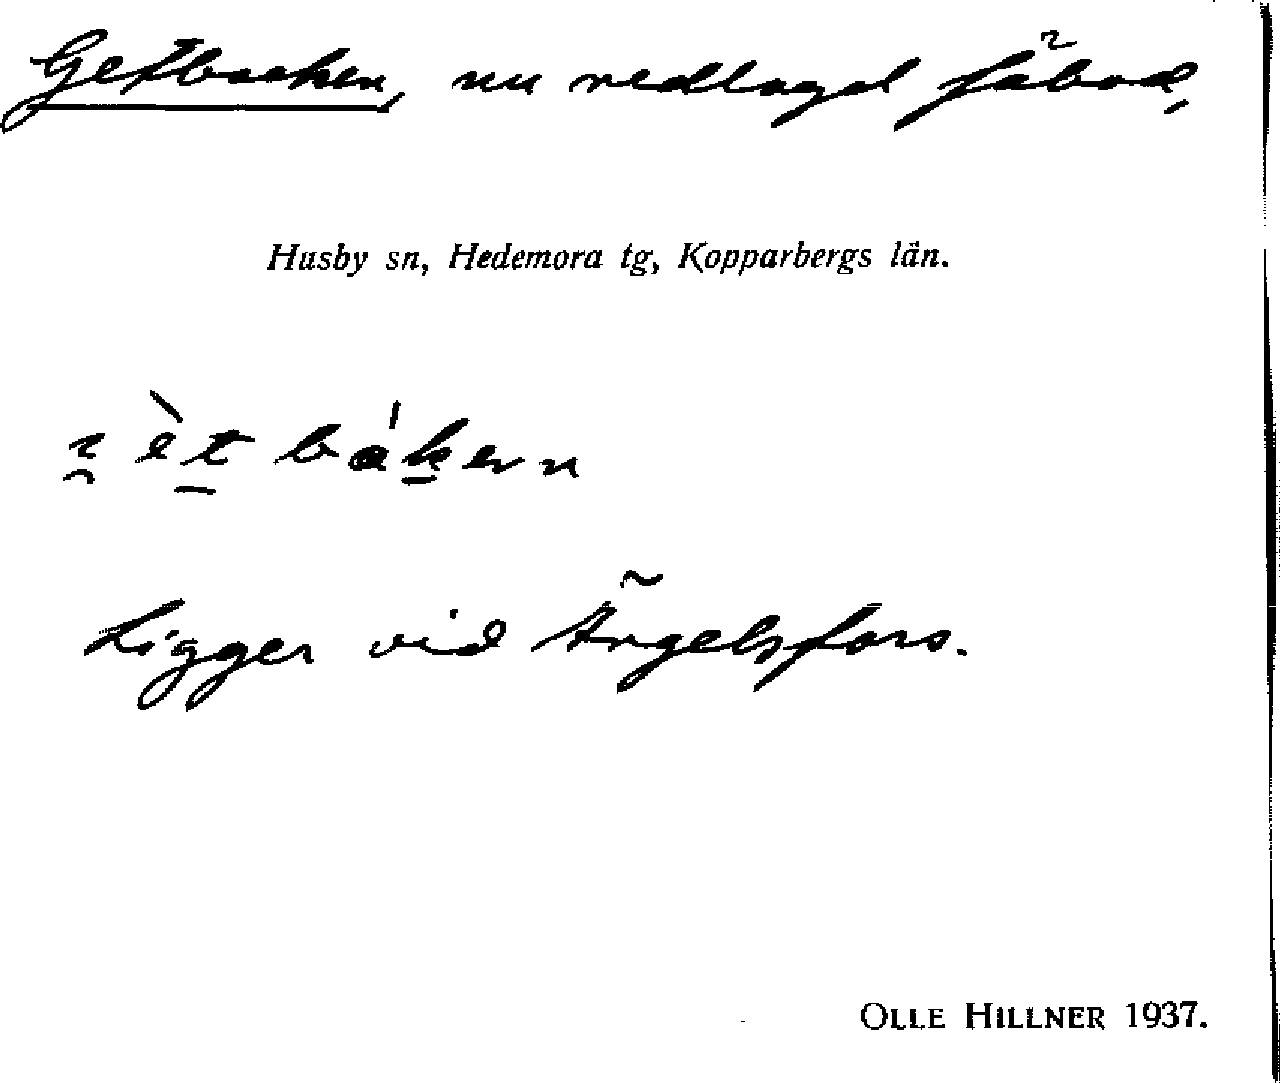 Getbacken, nu nedlagd fäbod,
Husby sn, Hedemora tg, Kopparbergs län.
Ligger vid Ängelsfors.
OLLE HILLNER 1937.